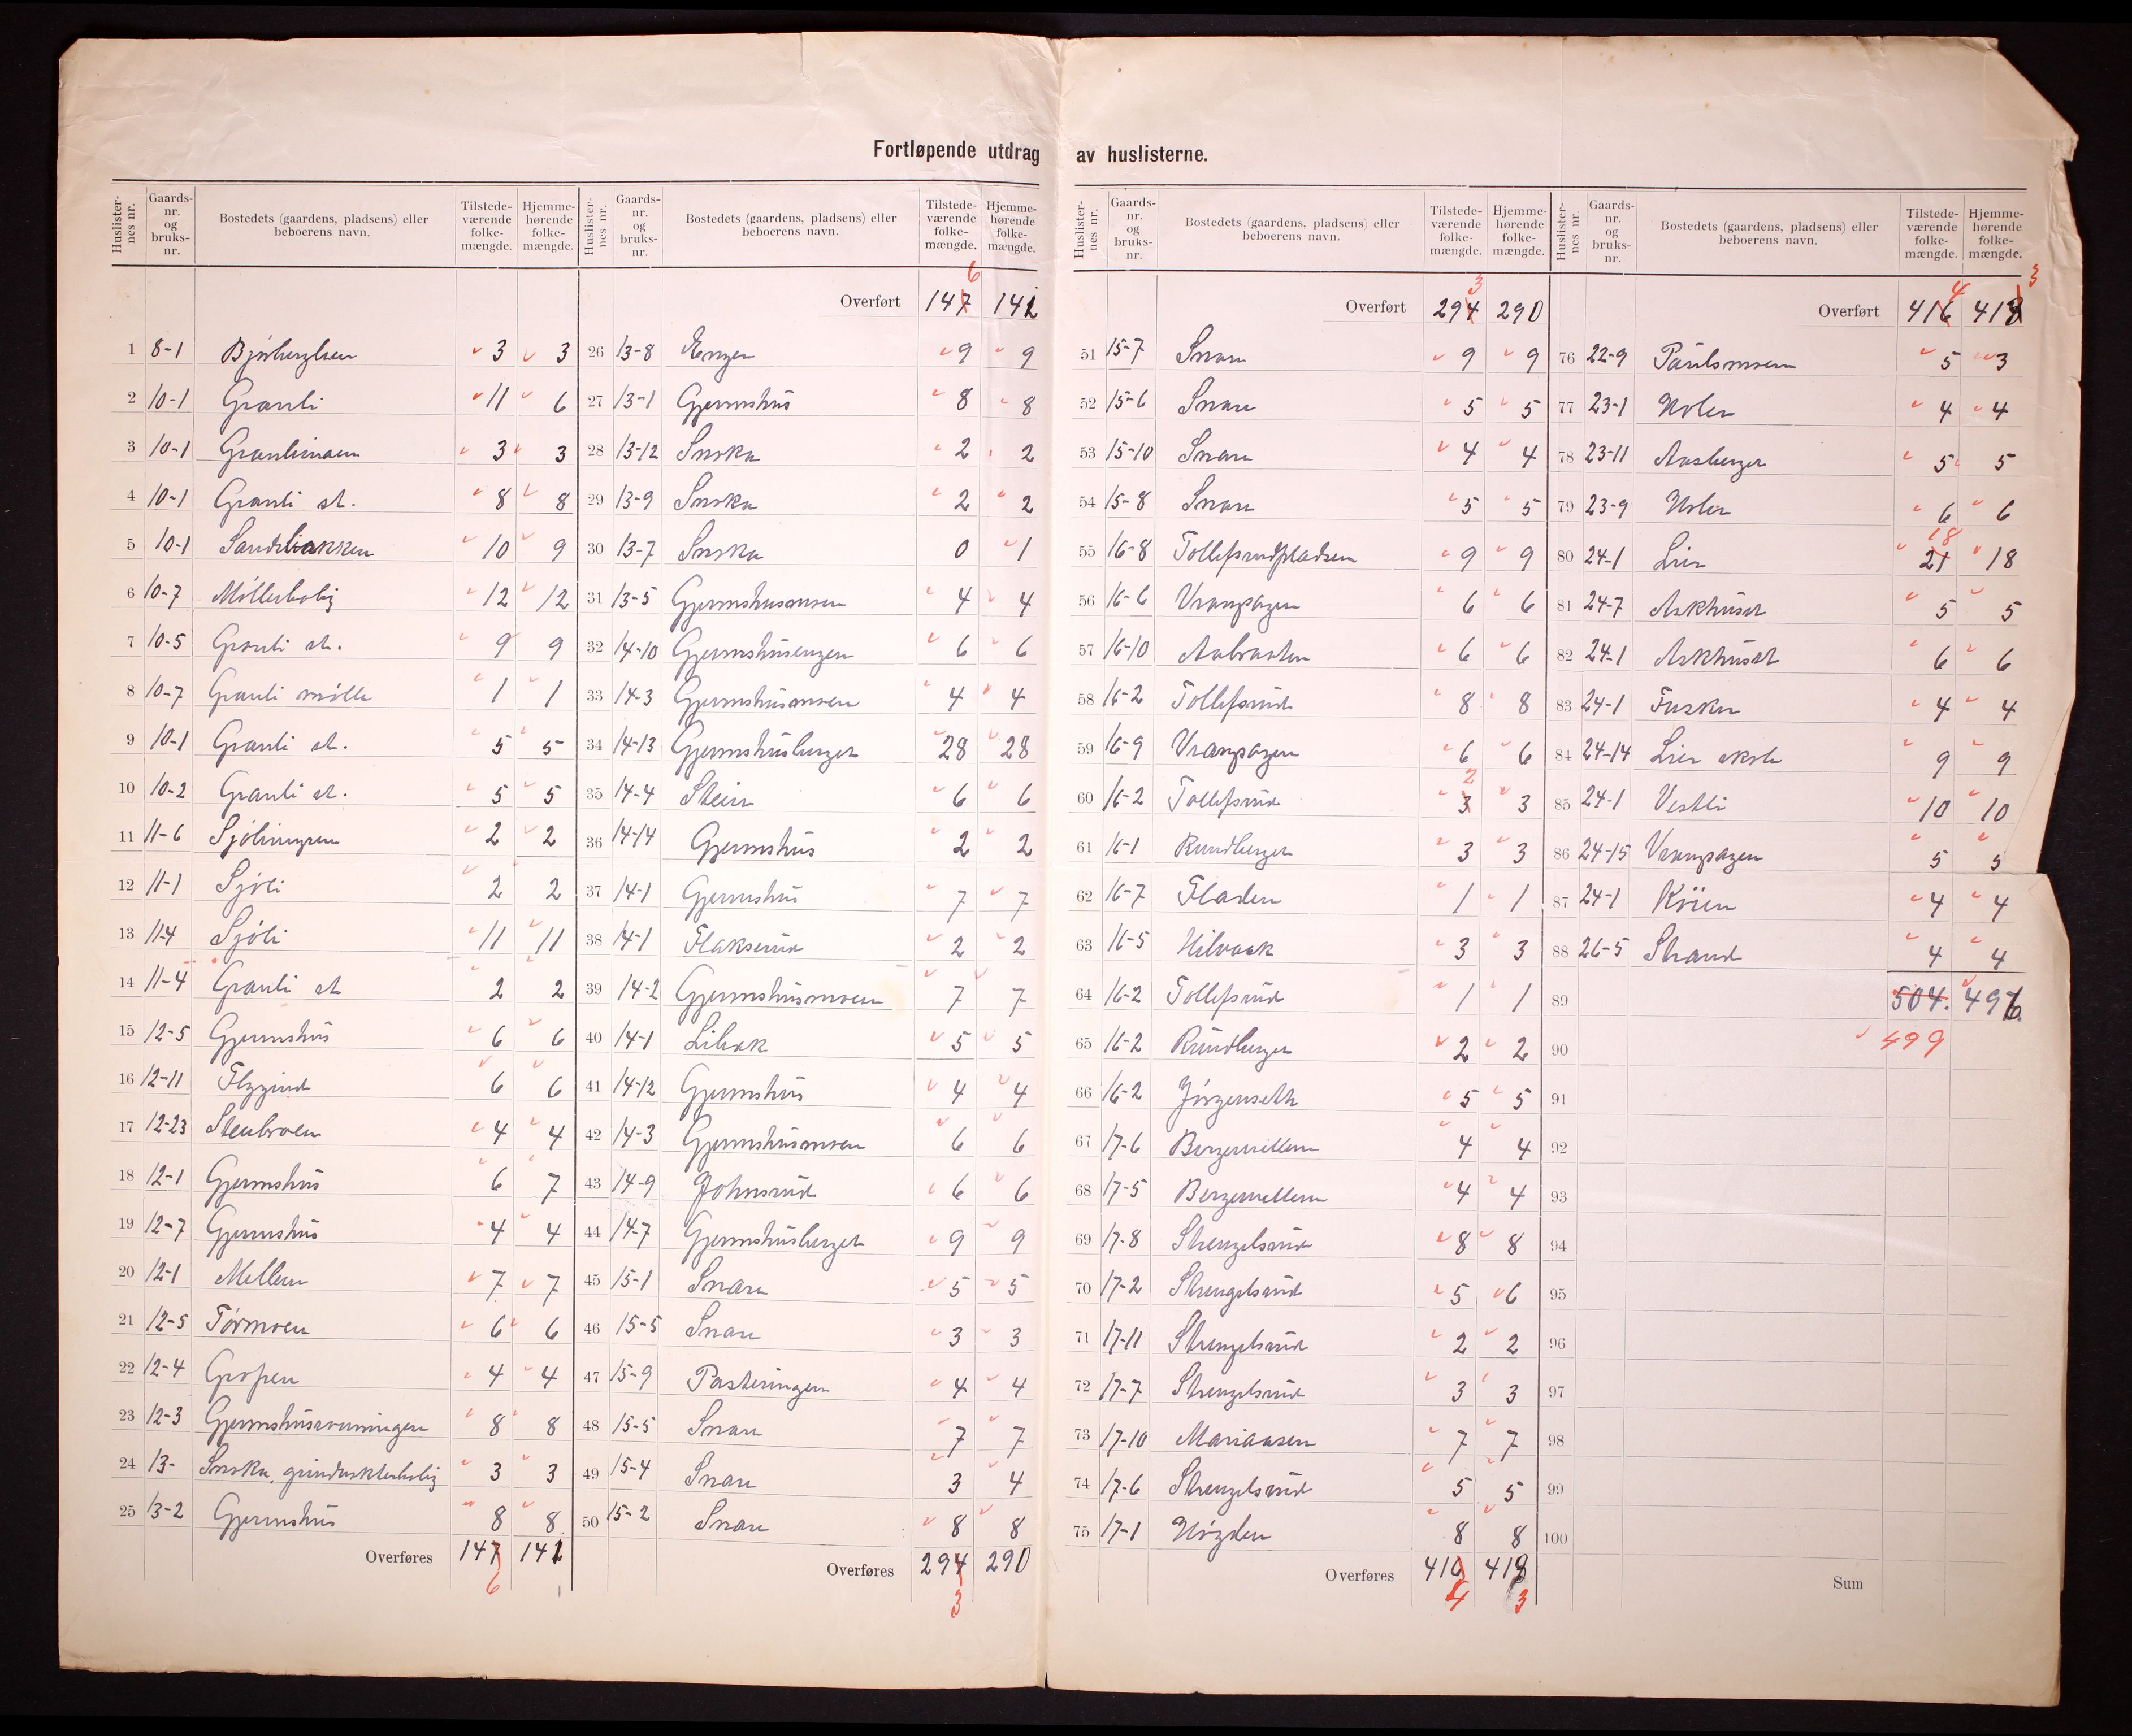 Fortløpende utdrag av huslisterne.
Huslisternes nr. Gaards-nr. og bruks-nr. Bostedets (gaardens, pladsens) eller beboerens navn. Tilstedeværende folkemængde. Hjemmehørende folkemængde.
1 8-1 3 3
2 10-1 Granli 11 6
3 10-1 Granlimoen 3 3
4 10-1 Granli st. 8 8
5 10-1 Sandsbakken 10 9
6 10-7 Møllerbolig 12 12
7 10-5 Granli st. 9 9
8 10-7 Granli mølle 1 1
9 10-1 Granli st. 5 5
10 10-2 Granli st. 5 5
11 11-6 2 2
12 11-1 Sjøli 2 2
13 11-4 Sjøli 11 11
14 11-4 Granli st 2 2
15 12-5 Gjermshus 6 6
16 12-11 6 6
17 12-23 Stenbroen 4 4
18 12-1 Gjermshus 6 7
19 12-7 Gjermshus 4 4
20 12-1 Mellem 7 7
21 12-5 Tørmoen 6 6
22 12-4 Gropen 4 4
23 12-3 8 8
24 13- 3 3
25 13-2 Gjermshus 8 8
Overføres 147 141
6
Huslisternes nr. Gaards-nr. og bruks-nr. Bostedets (gaardens, pladsens) eller beboerens navn. Tilstedeværende folkemængde. Hjemmehørende folkemængde.
6
Overført 147 141
26 13-8 Engen 9 9
27 13-1 Gjermshus 8 8
28 13-12 2 2
29 13-9 2 2
30 13-7 0 1
31 13-5 Gjermshusmoen 4 4
32 14-10 Gjermshusengen 6 6
33 14-3 Gjermshusmoen 4 4
34 14-13 Gjermshusberget 28 28
35 14-4 Stein 6 6
36 14-14 Gjermshus 2 2
37 14-1 Gjermshus 7 7
38 14-1 Flakserud 2 2
39 14-2 Gjermshusmoen 7 7
40 14-1 5 5
41 14-12 Gjermshus 4 4
42 14-3 Gjermshusmoen 6 6
43 14-9 Johnsrud 6 6
44 14-7 Gjermshusberget 9 9
45 15-1 Snare 5 5
46 15-5 Snare 3 3
47 15-9 4 4
48 15-5 Snare 7 7
49 15-4 Snare 3 4
50 15-2 Snare 8 8
Overføres 294 290
3
Huslisternes nr. Gaards-nr. og bruks-nr. Bostedets (gaardens, pladsens) eller beboerens navn. Tilstedeværende folkemængde. Hjemmehørende folkemængde.
3
Overført 294 290
51 15-7 Snare 9 9
52 15-6 Snare 5 5
53 15-10 Snare 4 4
54 15-8 Snare 5 5
55 16-8 Tollefsrudpladsen 9 9
56 16-6 Vrangagen 6 6
57 16-10 Aabraaten 6 6
58 16-2 Tollefsrud 8 8
59 16-9 Vrangagen 6 6
2
60 16-2 Tollefsrud 3 3
61 16-1 Rundberget 3 3
62 16-7 Fladen 1 1
63 16-5 3 3
64 16-2 Tollefsrud 1 1
65 16-2 Rundberget 2 2
66 16-2 Jørgenseth 5 5
67 17-6 4 4
68 17-5 4 4
69 17-8 Strengelsrud 8 8
70 17-2 Strengelsrud 5 6
71 17-11 Strengelsrud 2 2
72 17-7 Strengelsrud 3 3
73 17-10 Mariaasen 7 7
74 17-6 Strengelsrud 5 5
75 17-1 Høgden 8 8
Overføres 416 418
4 3
Huslisternes nr. Gaards-nr. og bruks-nr. Bostedets (gaardens, pladsens) eller beboerens navn. Tilstedeværende folkemængde. Hjemmehørende folkemængde.
4 3
Overført 416 418
76 22-9 Paulsmoen 5 3
77 23-1 Noler 4 4
78 23-11 Aasberget 5 5
79 23-9 Noler 6 6
18
80 24-1 Lier 21 18
81 24-7 Askhuset 5 5
82 24-1 Askhuset 6 6
83 24-1 4 4
84 24-14 Lier skole 9 9
85 24-1 Vestli 10 10
86 24-15 Vrangagen 5 5
87 24-1 4 4
88 26-5 Strand 4 4
89 504. 496.
90 499
91
92
93
94
95
96
97
98
99
100
Sum